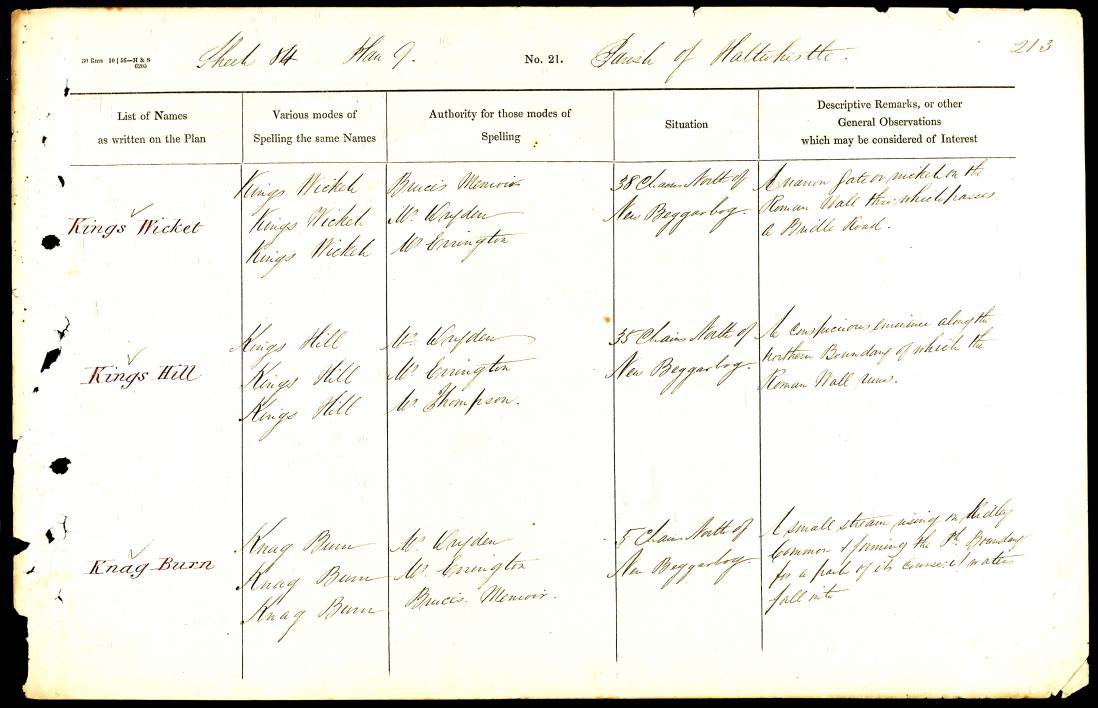 213
Sheet 84 Plan 9. No. 21. Parish of Haltwhistle.
List of Names
as written on the Plan
Various modes of
Spelling the same Names
Authority for those modes of
Spelling
Situation
Descriptive Remarks, or other
General Observations
which may be considered of Interest
Kings Wicket
Kings Wicket
Kings Wicket
Kings Wicket
Bruce's Memoirs
Mr. Cryden
Mr. Errington
38 Chains North of
New Beggarbog.
A narrow Gate or wicket on the
Roman Wall thro' which passes
a Bridle Road.
Kings Hill
Kings Hill
Kings Hill
Kings Hill
Mr. Cryden
Mr. Errington
Mr. Thompson.
35 Chains North of
New Beggarbog.
A conspicuous eminence along the
northern Boundary of which the
Roman Wall runs.
Knag Burn
Knag Burn
Knag Burn
Knag Burn
Mr. Cryden
Mr. Errington
Bruces Memoir.
5 Chains North of
New Beggarbog.
A small stream rising on Ridley
Common & forming the Ph. Boundary
for a part of its course its waters
fall into